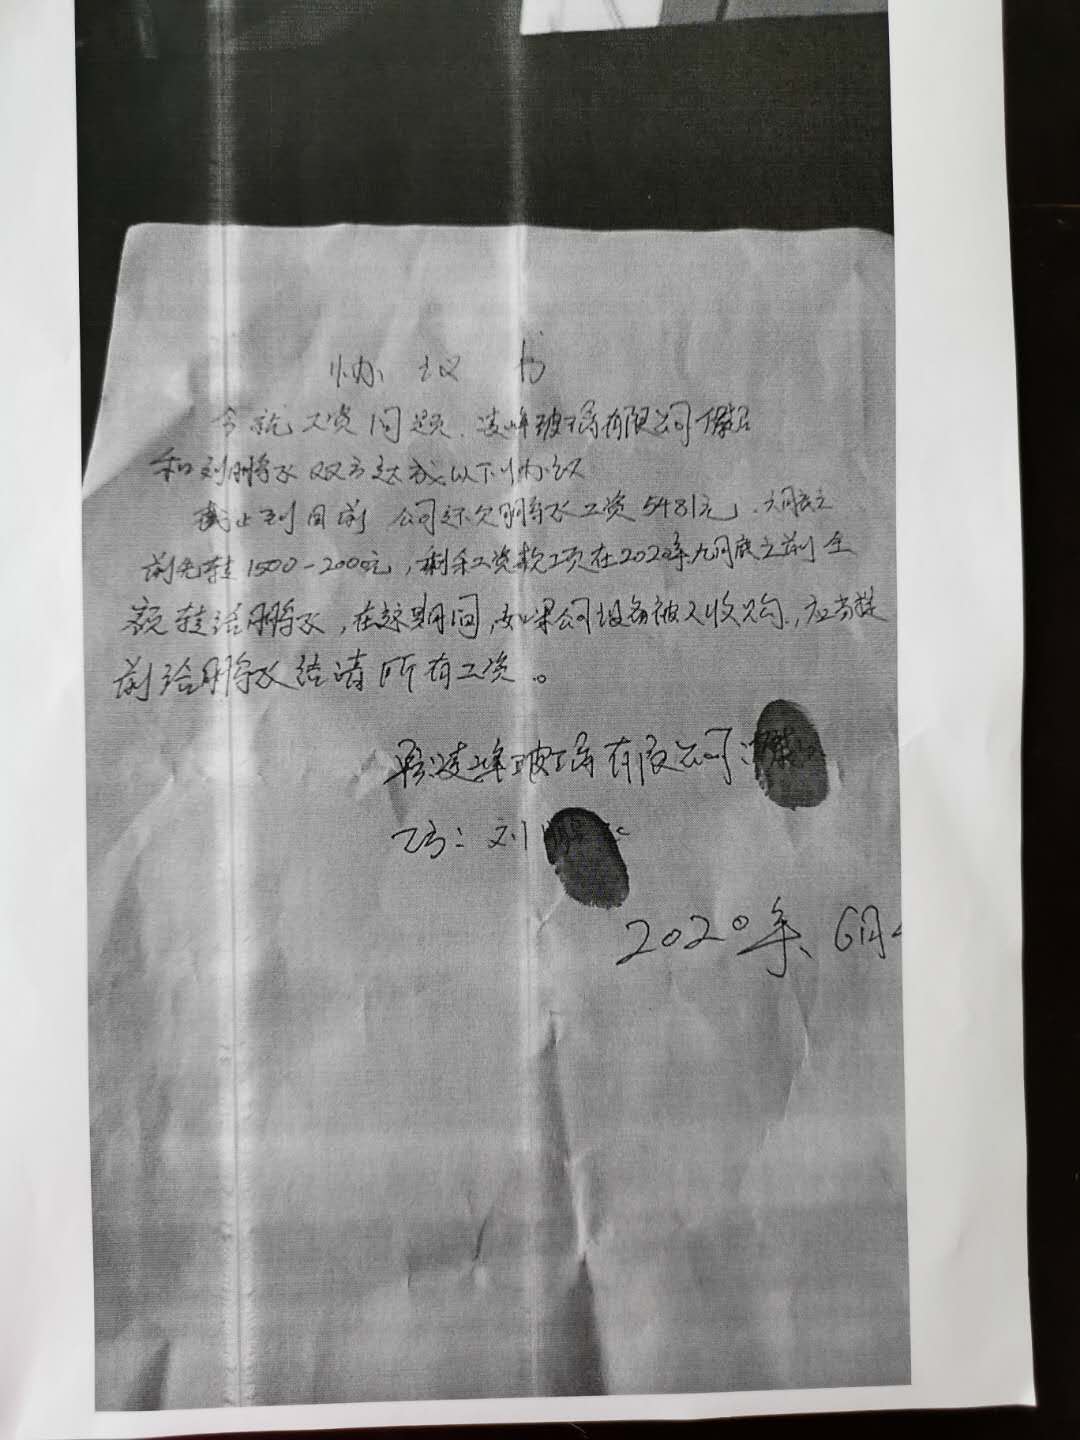 协议书
今就工资问题.凌峰玻璃有限公司
和刘鹏永双方达成以下协议
截止到目前 公司还欠鹏永工资5481元,六月底之
前先转1500-2000元,剩余工资款项在2020年九月底之前全
额转给鹏永,在这期间,如果公司设备被人收购,应当提
前给鹏永结清所有工资。
凌峰玻璃有限公司:
乙方:刘
2020年6月